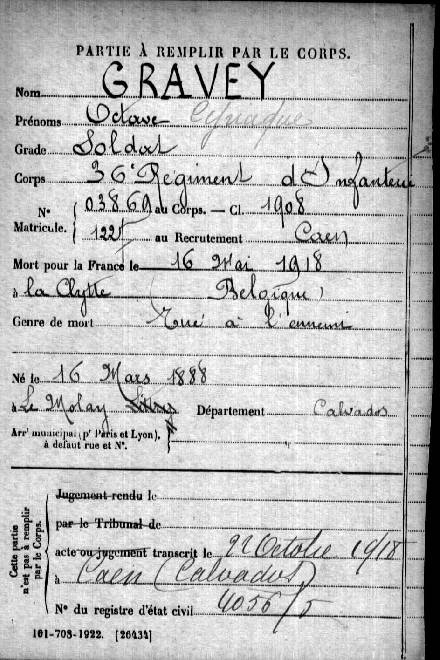 PARTIE À REMPLIR PAR LE CORPS.
Nom GRAVEY
Prénoms Octave Cyriaque
Grade Soldat
Corps 36e Régiment d'Infanterie
N° Matricule. { 03869 au Corps. — Cl. 1908
1225 au Recrutement Caen
Mort pour la France le 16 Mai 1918
à la Clytte (Belgique)
Genre de mort Tué à l'ennemi
Né le 16 Mars 1888
à Le Molay Littry Département Calvados
Arrt municipal (pr Paris et Lyon), à défaut rue et N°.
Cette partie n'est pas à remplir par le Corps.
Jugement rendu le
par le Tribunal de
acte ou jugement transcrit le 22 Octobre 1918
à Caen (Calvados)
N° du registre d'état civil 4056/5
101-708-1922. [26434]